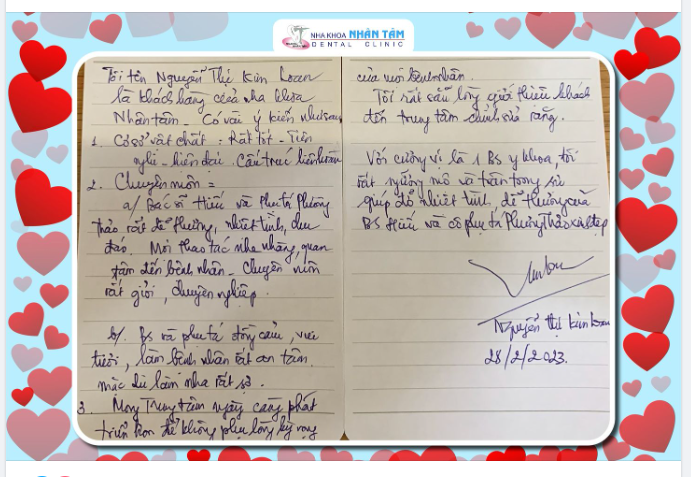 NHA KHOA NHÂN TÂM
DENTAL CLINIC
Tôi tên Nguyễn Thị Kim Loan
là khách hàng của nha khoa
Nhân tâm - Có vài ý kiến như sau
1. Cơ sở vật chất: Rất tốt - Tiện
nghi - hiện đại. Cấu trúc
2. Chuyên môn =
a/ Bác sĩ Hiếu và Phụ tá Phương
Thảo rất dễ thương, nhiệt tình, chu
đáo. Mọi thao tác nhẹ nhàng, quan
tâm đến bệnh nhân - Chuyên môn
rất giỏi, chuyên nghiệp.
b/. Bs và phụ tá đồng cảm, vui
tươi, làm bệnh nhân rất an tâm,
mặc dù làm nha rất sợ.
3. Mong Trung tâm ngày càng phát
triển hơn để không phụ lòng kỳ vọng
của mọi bệnh nhân.
Tôi rất sẵn lòng giới thiệu khách
đến trung tâm chỉnh sửa răng.
Với cương vị là 1 BS y khoa, tôi
rất ngưỡng mộ và trân trọng sự
giúp đỡ nhiệt tình, dễ thương của
BS Hiếu và cô phụ tá Phương Thảo xinh đẹp
Nguyễn Thị Kim Loan
28/2/2023.